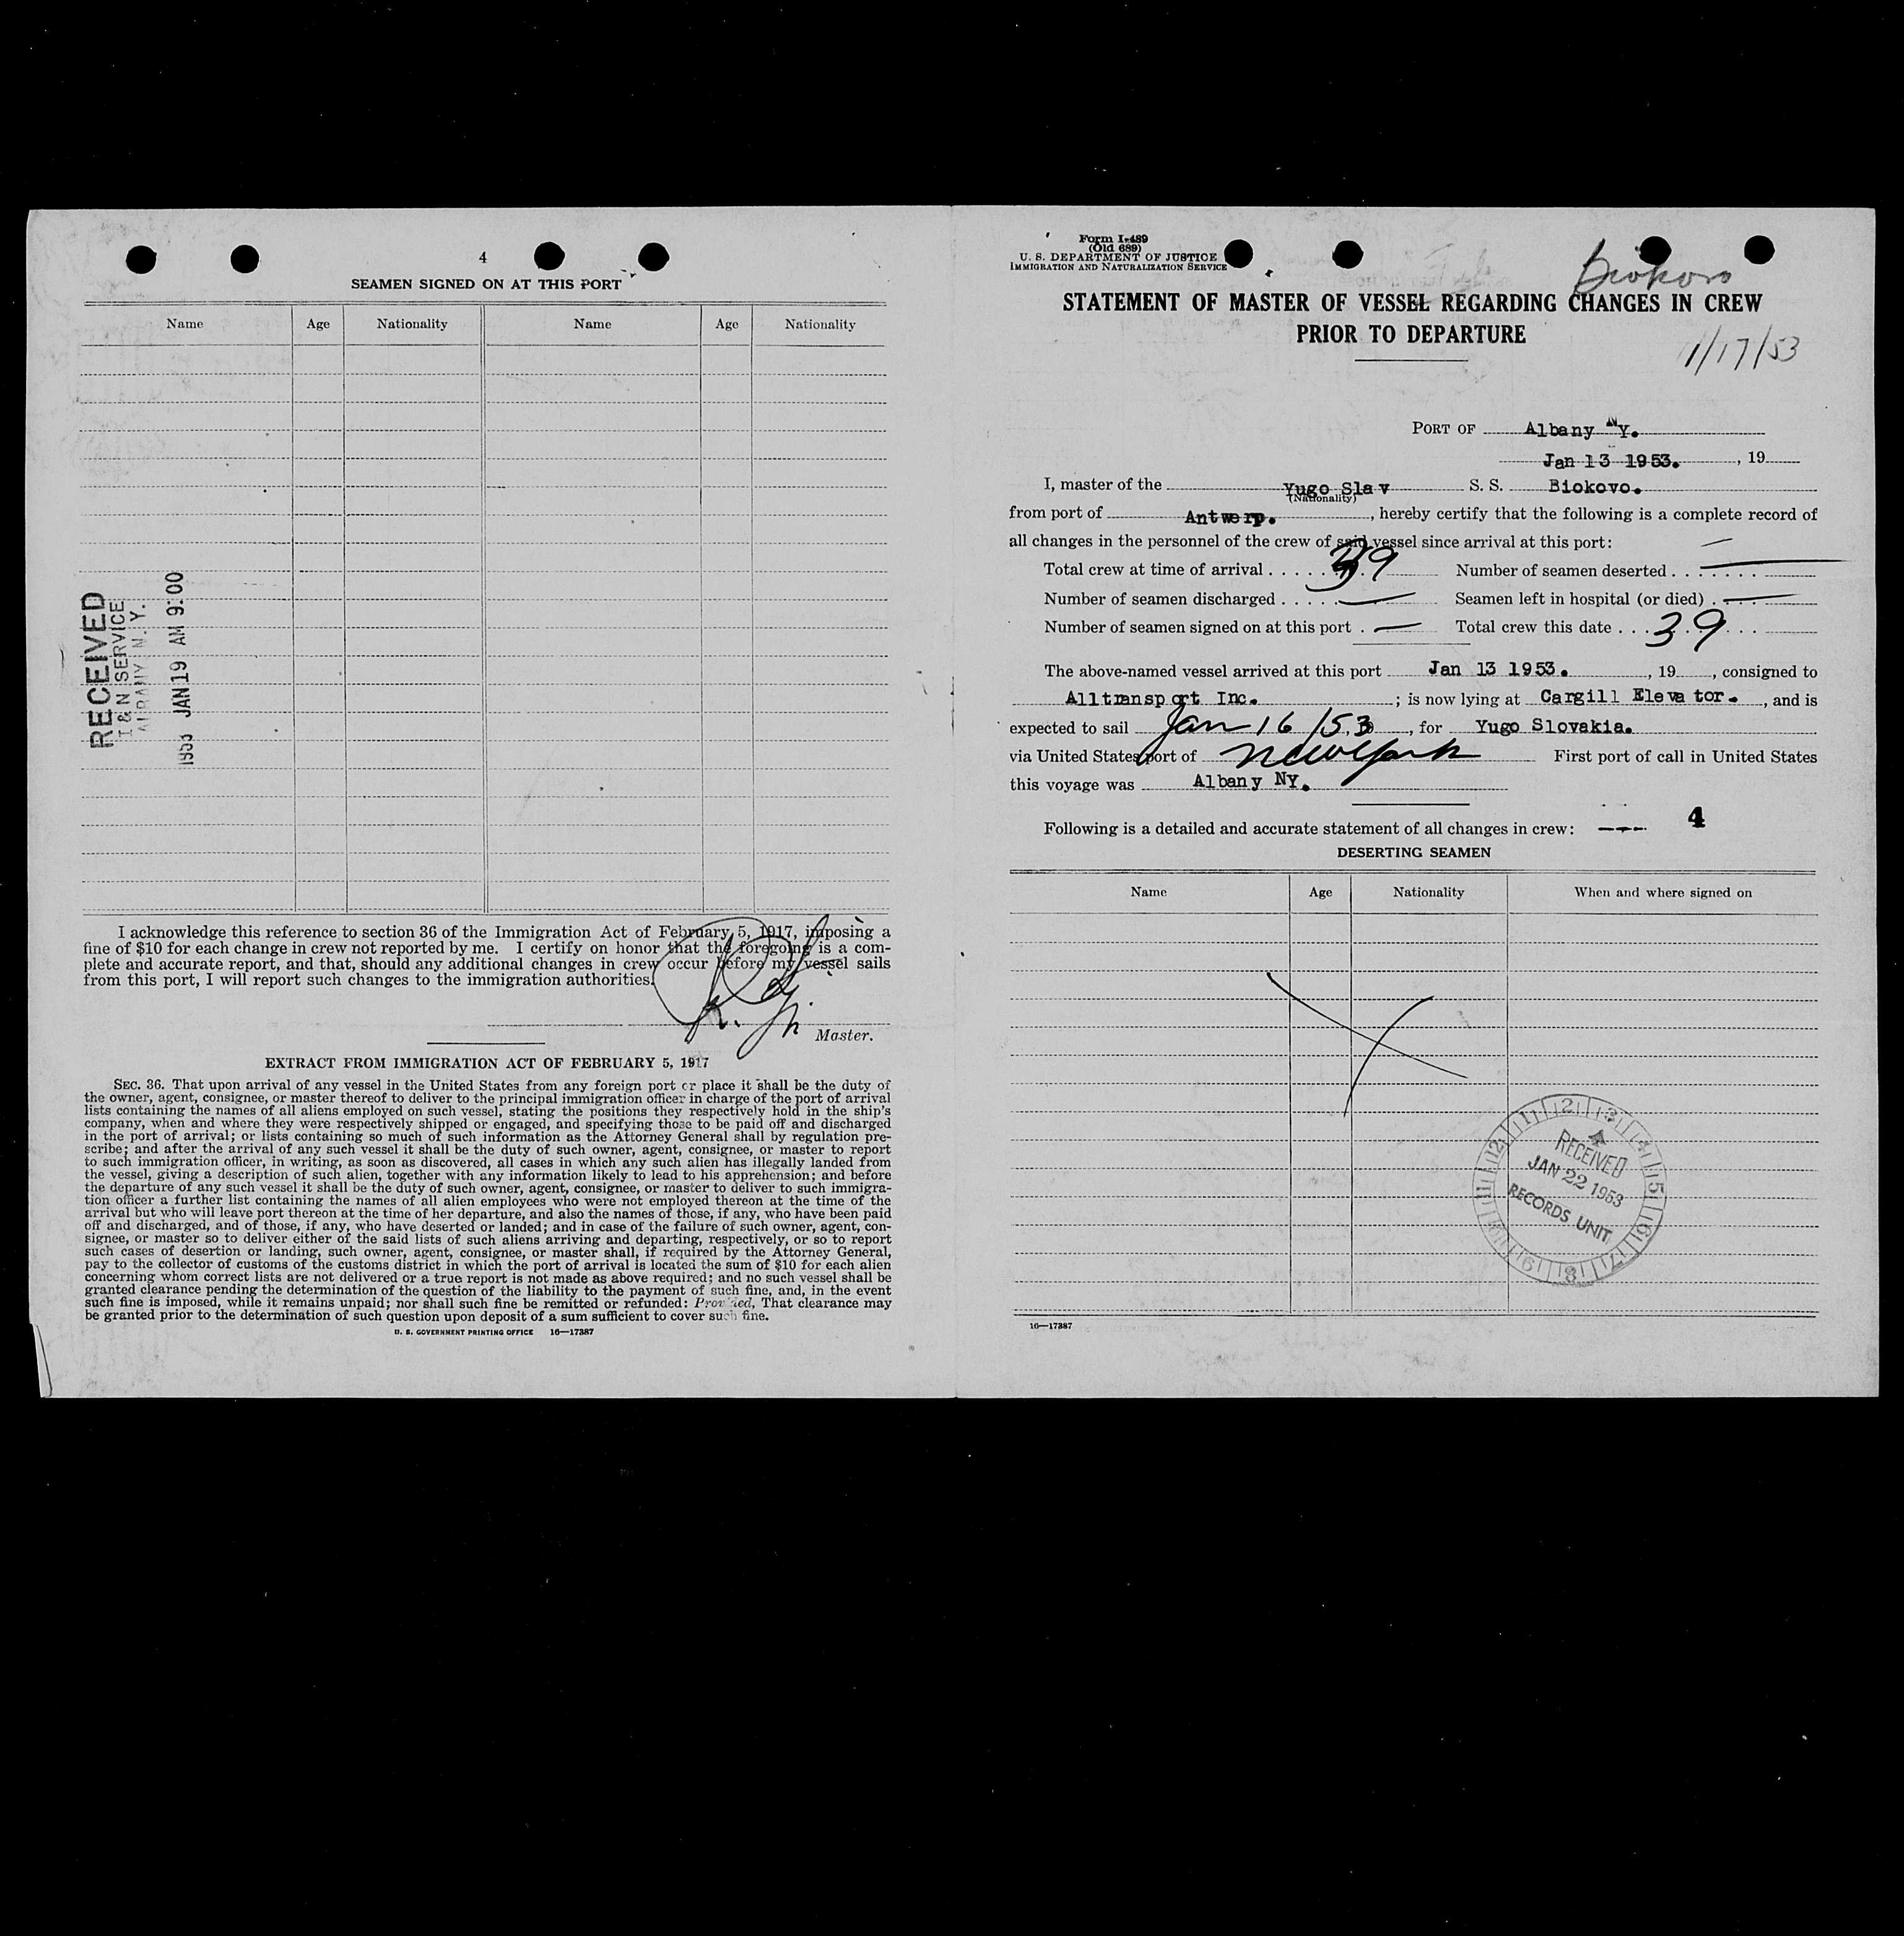 4
SEAMEN SIGNED ON AT THIS PORT
Name Age Nationality Name Age Nationality
RECEIVED
I & N SERVICE
ALBANY N. Y.
1953 JAN 19 AM 9:00
I acknowledge this reference to section 36 of the Immigration Act of February 5, 1917, imposing a
fine of $10 for each change in crew not reported by me. I certify on honor that the foregoing is a com-
plete and accurate report, and that, should any additional changes in crew occur before my vessel sails
from this port, I will report such changes to the immigration authorities.
Master.
EXTRACT FROM IMMIGRATION ACT OF FEBRUARY 5, 1917
SEC. 36. That upon arrival of any vessel in the United States from any foreign port or place it shall be the duty of
the owner, agent, consignee, or master thereof to deliver to the principal immigration officer in charge of the port of arrival
lists containing the names of all aliens employed on such vessel, stating the positions they respectively hold in the ship's
company, when and where they were respectively shipped or engaged, and specifying those to be paid off and discharged
in the port of arrival; or lists containing so much of such information as the Attorney General shall by regulation pre-
scribe; and after the arrival of any such vessel it shall be the duty of such owner, agent, consignee, or master to report
to such immigration officer, in writing, as soon as discovered, all cases in which any such alien has illegally landed from
the vessel, giving a description of such alien, together with any information likely to lead to his apprehension; and before
the departure of any such vessel it shall be the duty of such owner, agent, consignee, or master to deliver to such immigra-
tion officer a further list containing the names of all alien employees who were not employed thereon at the time of the
arrival but who will leave port thereon at the time of her departure, and also the names of those, if any, who have been paid
off and discharged, and of those, if any, who have deserted or landed; and in case of the failure of such owner, agent, con-
signee, or master so to deliver either of the said lists of such aliens arriving and departing, respectively, or so to report
such cases of desertion or landing, such owner, agent, consignee, or master shall, if required by the Attorney General,
pay to the collector of customs of the customs district in which the port of arrival is located the sum of $10 for each alien
concerning whom correct lists are not delivered or a true report is not made as above required; and no such vessel shall be
granted clearance pending the determination of the question of the liability to the payment of such fine, and, in the event
such fine is imposed, while it remains unpaid; nor shall such fine be remitted or refunded: Provided, That clearance may
be granted prior to the determination of such question upon deposit of a sum sufficient to cover such fine.
U. S. GOVERNMENT PRINTING OFFICE 16—17387
Form I-489
(Old 689)
U. S. DEPARTMENT OF JUSTICE
IMMIGRATION AND NATURALIZATION SERVICE
Biokovo
STATEMENT OF MASTER OF VESSEL REGARDING CHANGES IN CREW
PRIOR TO DEPARTURE
1/17/53
PORT OF Albany NY.
Jan 13 1953. , 19
I, master of the Yugo Slav S. S. Biokovo.
(Nationality)
from port of Antwerp. , hereby certify that the following is a complete record of
all changes in the personnel of the crew of said vessel since arrival at this port: —
Total crew at time of arrival . . . . 39 Number of seamen deserted . . . . . . . —
Number of seamen discharged . . . . . — Seamen left in hospital (or died) . . . . —
Number of seamen signed on at this port . — Total crew this date . . . 39 . . .
The above-named vessel arrived at this port Jan 13 1953. , 19 , consigned to
Alltransport Inc. ; is now lying at Cargill Elevator. , and is
expected to sail Jan 16/53, 19 , for Yugo Slovakia.
via United States port of New York First port of call in United States
this voyage was Albany NY.
Following is a detailed and accurate statement of all changes in crew: ---- 4
DESERTING SEAMEN
Name Age Nationality When and where signed on
X
12 1 2 3 4 5 6 7 8 9 10 11
RECEIVED
JAN 22 1953
RECORDS UNIT
16—17387